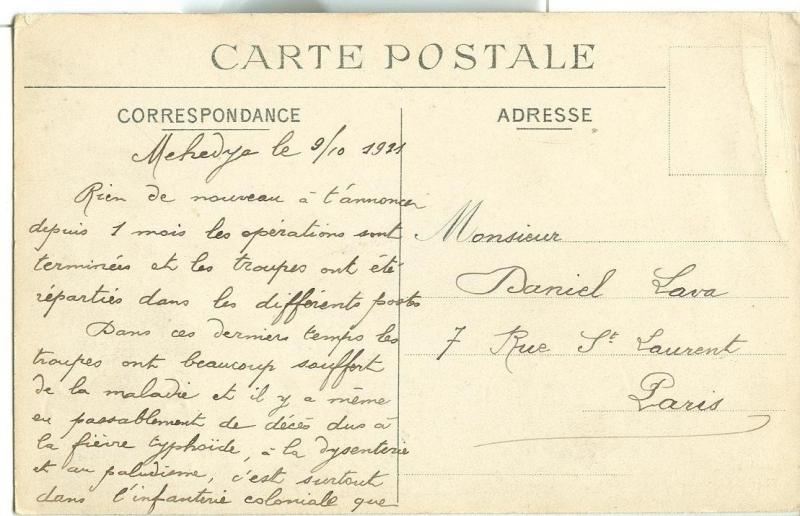 CARTE POSTALE
CORRESPONDANCE
Mehedya le 9/10 1921
Rien de nouveau à t'annoncer
depuis 1 mois les opérations sont
terminées et les troupes ont été
réparties dans les différents postes
Dans ces derniers temps les
troupes ont beaucoup souffert
de la maladie et il y a même
eu passablement de décès dus à
la fièvre typhoïde, à la dysenterie
et au paludisme, c'est surtout
dans l'infanterie coloniale que
ADRESSE
Monsieur
Daniel Lava
7 Rue St Laurent
Paris